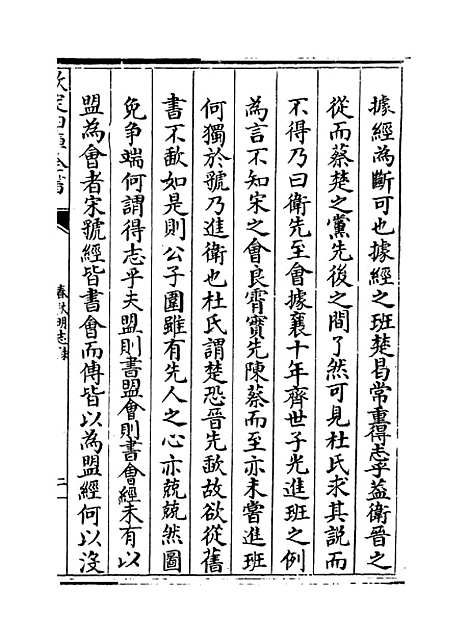 據經為斷可也據經之班楚曷常重得志乎葢衛晉之
從而蔡楚之黨先後之間了然可見杜氏求其說而
不得乃曰衛先至會據襄十年齊世子光進班之例
為言不知宋之會良霄實先陳蔡而至亦未嘗進班
何獨於虢乃進衛也杜氏謂楚恐晉先歃故欲從舊
書不歃如是則公子圍雖有先人之心亦兢兢然圖
免爭端何謂得志乎夫盟則書盟會則書會經未有以
盟為會者宋虢經皆書會而傳皆以為盟經何以沒
欽定四庫全書
春秋明志錄